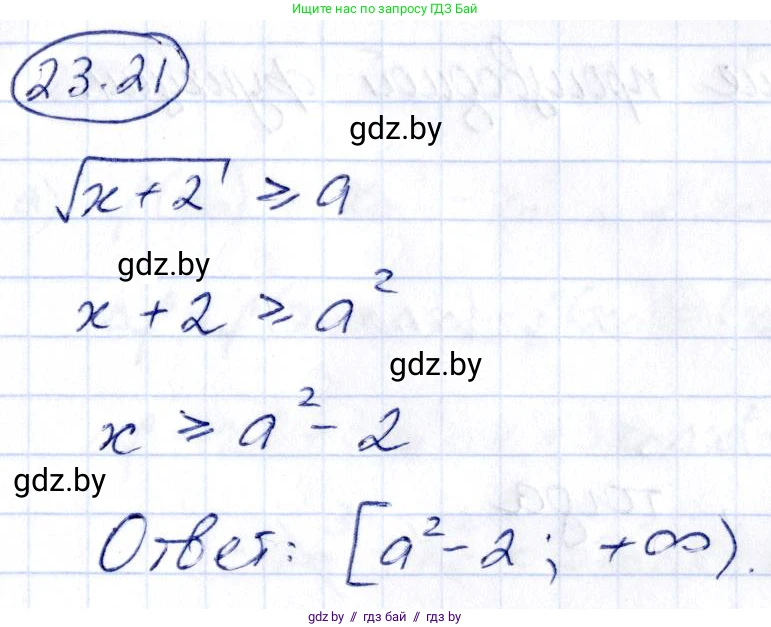 Ищите нас по запросу ГДЗ Бай
23.21
gdz.by
√x+2 ⩾ a
gdz.by
x + 2 ⩾ a²
gdz.by
x ⩾ a² - 2
gdz.by
Ответ: [a² - 2; +∞).
gdz.by // гдз бай // гдз by